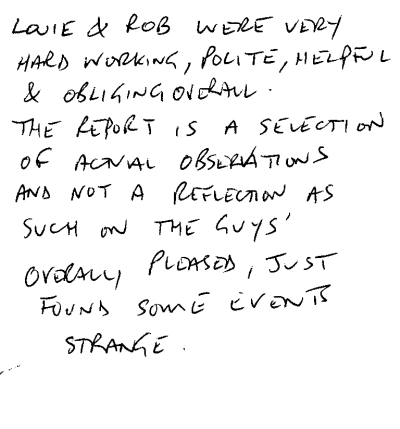 LOUIE & ROB WERE VERY
HARD WORKING, POLITE, HELPFUL
& OBLIGING OVERALL.
THE REPORT IS A SELECTION
OF ACTUAL OBSERVATIONS
AND NOT A REFLECTION AS
SUCH ON THE GUYS'
OVERALL, PLEASED, JUST
FOUND SOME EVENTS
STRANGE.